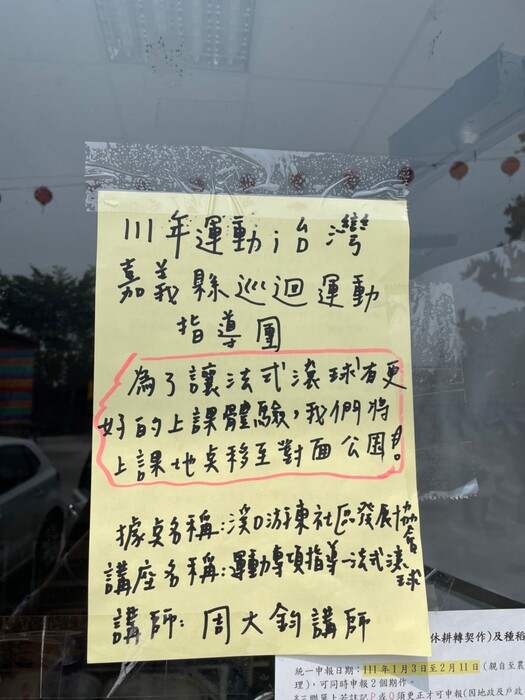 111年運動i台灣
嘉義縣巡迴運動
指導團
為了讓法式滾球有更
好的上課體驗,我們將
上課地點移至對面公園!
據點名稱:溪口游東社區發展協會
講座名稱:運動專項指導-法式滾球
講師:周大鈞講師
休耕轉契作)及種稻
統一申報日期:111年1月3日至2月11日(親自至農
理),可同時申報2個期作。